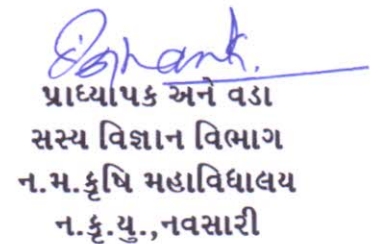 પ્રાધ્યાપક અને વડા
સસ્ય વિજ્ઞાન વિભાગ
ન.મ.કૃષિ મહાવિધાલય
ન.કૃ.યુ.,નવસારી